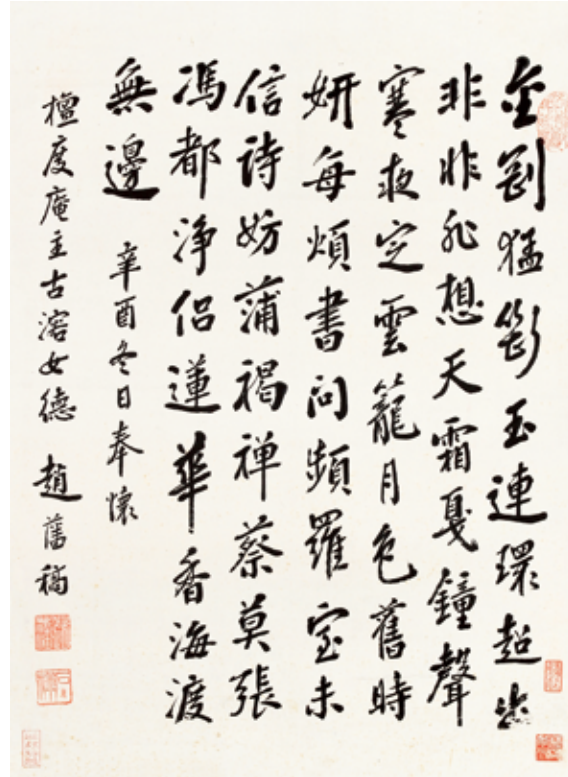 金剛猛斷玉連環超出
非非非想天霜戛鐘聲
寒夜定雲籠月色舊時
妍每煩書問頻羅室未
信詩妨蒲褐禅蔡莫張
馮都淨侶蓮華香海渡
無邊 辛酉冬日奉懷
檀度庵主古溶女德 趙藩稿